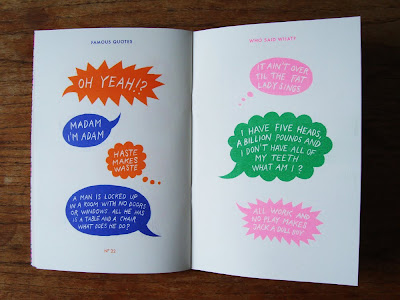 FAMOUS QUOTES
OH YEAH!?
MADAM
I'M ADAM
HASTE
MAKES
WASTE
A MAN IS LOCKED UP
IN A ROOM WITH NO DOORS
OR WINDOWS. ALL HE HAS
IS A TABLE AND A CHAIR
WHAT DOES HE DO?
Nº 22
WHO SAID WHAT?
IT AIN'T OVER
TIL THE FAT
LADY SINGS
I HAVE FIVE HEADS,
A BILLION POUNDS AND
I DON'T HAVE ALL OF
MY TEETH
WHAT AM I?
ALL WORK AND
NO PLAY MAKES
JACK A DULL BOY